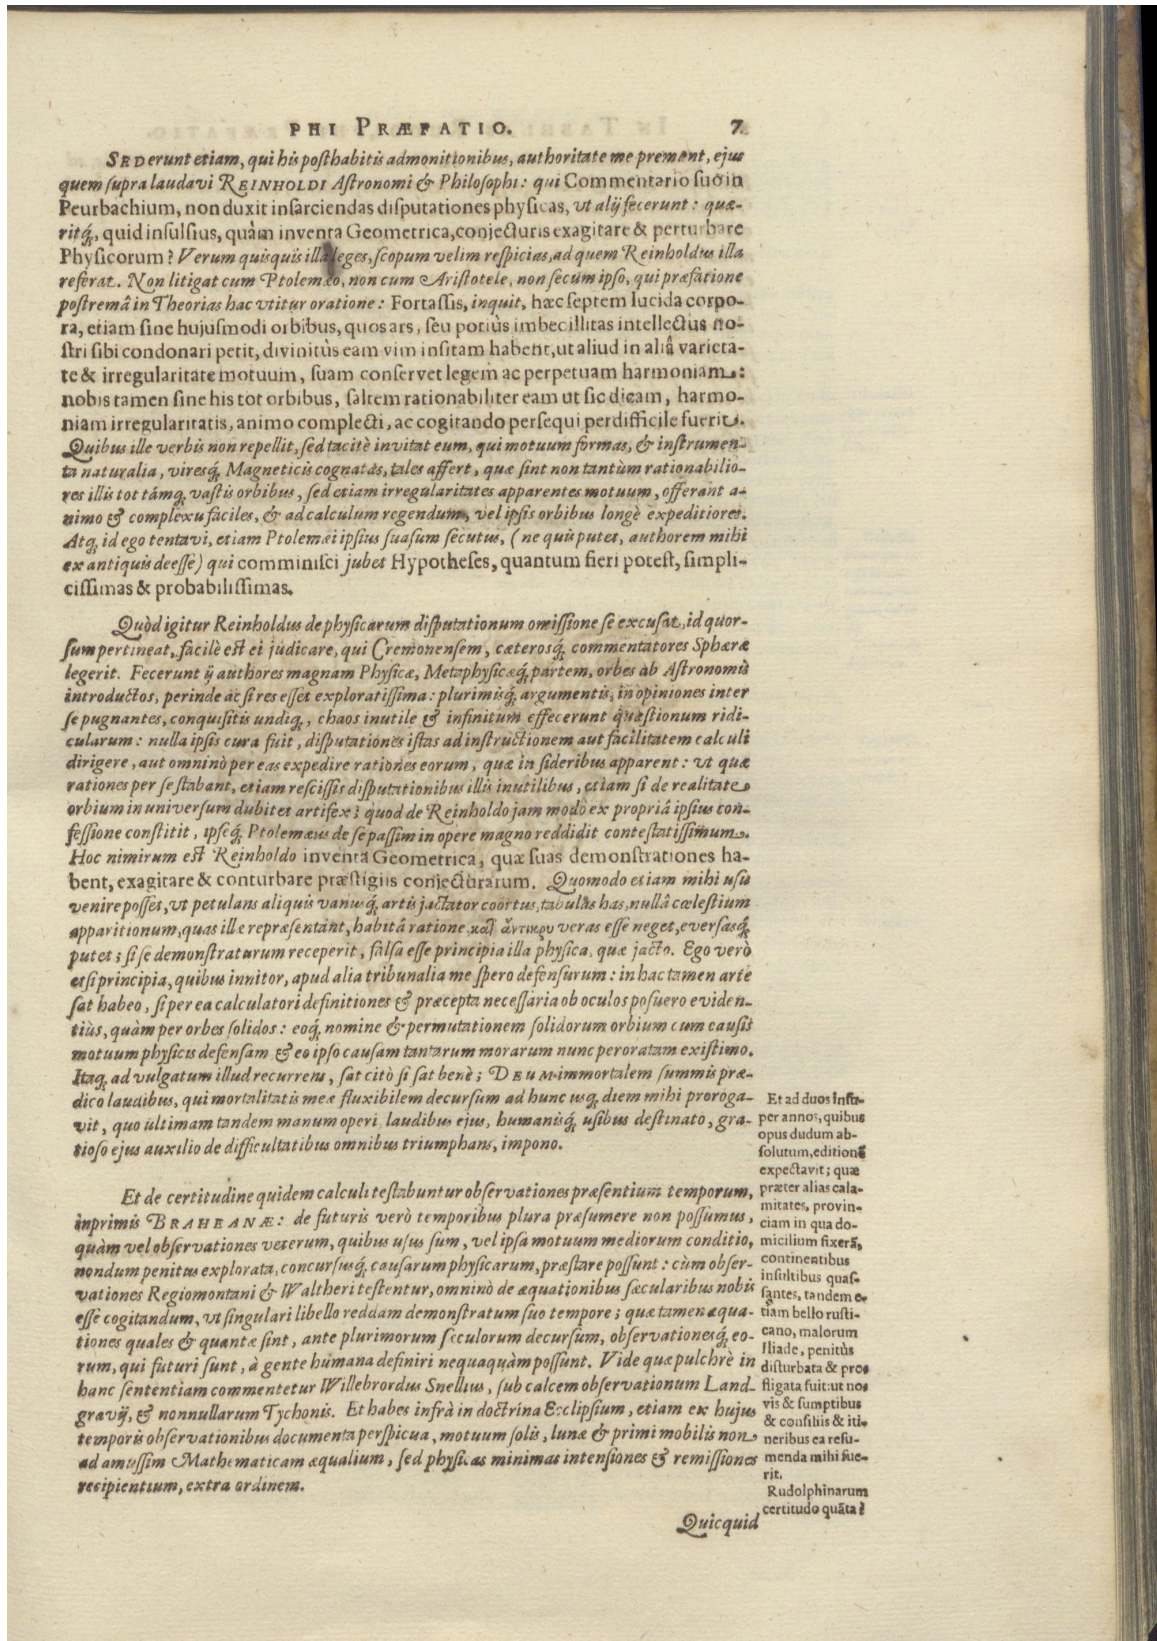 PHI PRÆFATIO. 7
SED erunt etiam, qui his posthabitis admonitionibus, authoritate me prement, ejus
quem supra laudavi REINHOLDI Astronomi & Philosophi: qui Commentario suo in
Peurbachium, non duxit insarciendas disputationes physicas, ut alij fecerunt: quæ-
ritq́, quid insulsius, quàm inventa Geometrica, conjecturis exagitare & perturbare
Physicorum? Verum quisquis illa leges, scopum velim respicias, ad quem Reinholdus illa
referat. Non litigat cum Ptolemæo, non cum Aristotele, non secùm ipso, qui præfatione
postremâ in Theorias hac utitur oratione: Fortassis, inquit, hæc septem lucida corpo-
ra, etiam sine hujusmodi orbibus, quos ars, seu potiùs imbecillitas intellectus no-
stri sibi condonari petit, divinitùs eam vim insitam habent, ut aliud in aliâ varieta-
te & irregularitate motuum, suam conservet legem ac perpetuam harmoniam:
nobis tamen sine his tot orbibus, saltem rationabiliter eam ut sic dicam, harmo-
niam irregularitatis, animo complecti, ac cogitando persequi perdifficile fuerit.
Quibus ille verbis non repellit, sed tacitè invitat eum, qui motuum formas, & instrumen-
ta naturalia, viresq́, Magneticis cognatas, tales affert, quæ sint non tantùm rationabilio-
res illis tot támq, vastis orbibus, sed etiam irregularitates apparentes motuum, offerant a-
nimo & complexu faciles, & ad calculum regendum, vel ipsis orbibus longè expeditiores.
Atq, id ego tentavi, etiam Ptolemæi ipsius suasum secutus, (ne quis putet, authorem mihi
ex antiquis deesse) qui comminisci jubet Hypotheses, quantum fieri potest, simpli-
cissimas & probabilissimas.
Quòd igitur Reinholdus de physicarum disputationum omissione se excusat, id quor-
sum pertineat, facilè est ei judicare, qui Cremonensem, cæterosq́, commentatores Sphæræ
legerit. Fecerunt ij authores magnam Physicæ, Metaphysicæq́, partem, orbes ab Astronomis
introductos, perinde ac si res esset exploratissima: plurimisq́, argumentis, in opiniones inter
se pugnantes, conquisitis undiq, chaos inutile & infinitum effecerunt quæstionum ridi-
cularum: nulla ipsis cura fuit, disputationes istas ad instructionem aut facilitatem calculi
dirigere, aut omninò per eas expedire rationes eorum, quæ in sideribus apparent: ut quæ
rationes per se stabant, etiam rescissis disputationibus illis inutilibus, etiam si de realitate
orbium in universum dubitet artifex; quod de Reinholdo jam modò ex propriâ ipsius con-
fessione constitit, ipseq́, Ptolemæus de se passim in opere magno reddidit contestatissimum.
Hoc nimirum est Reinholdo inventa Geometrica, quæ suas demonstrationes ha-
bent, exagitare & conturbare præstigiis conjecturarum. Quomodo etiam mihi usu
venire posset, ut petulans aliquis vanusq́, artis jactator coortus, tabulas has, nullâ cœlestium
apparitionum, quas illæ repræsentant, habitâ ratione καὶ ἄντικρυ veras esse neget, eversasq́
putet; si se demonstraturum receperit, falsa esse principia illa physica, quæ jacto. Ego verò
etsi principia, quibus innitor, apud alia tribunalia me spero defensurum: in hac tamen arte
sat habeo, si per ea calculatori definitiones & præcepta necessaria ob oculos posuero eviden-
tiùs, quàm per orbes solidos: eoq́, nomine & permutationem solidorum orbium cum causis
motuum physicis defensam & eo ipso causam tantarum morarum nunc peroratam existimo.
Itaq, ad vulgatum illud recurrens, sat citò si sat benè; DEUM immortalem summis præ-
dico laudibus, qui mortalitatis meæ fluxibilem decursum ad hunc usq, diem mihi proroga-
vit, quo ultimam tandem manum operi, laudibus ejus, humanisq́, usibus destinato, gra-
tioso ejus auxilio de difficultatibus omnibus triumphans, impono.
Et de certitudine quidem calculi testabuntur observationes præsentium temporum,
inprimis BRAHEANÆ: de futuris verò temporibus plura præsumere non possumus,
quàm vel observationes veterum, quibus usus sum, vel ipsa motuum mediorum conditio,
nondum penitus explorata, concursusq́, causarum physicarum, præstare possunt: cùm obser-
vationes Regiomontani & Waltheri testentur, omninò de æquationibus sæcularibus nobis
esse cogitandum, ut singulari libello reddam demonstratum suo tempore; quæ tamen æqua-
tiones quales & quantæ sint, ante plurimorum sæculorum decursum, observationesq́, eo-
rum, qui futuri sunt, à gente humana definiri nequaquàm possunt. Vide quæ pulchrè in
hanc sententiam commentetur Willebrordus Snellius, sub calcem observationum Land-
gravij, & nonnullarum Tychonis. Et habes infrà in doctrina Ecclipsium, etiam ex hujus
temporis observationibus documenta perspicua, motuum solis, lunæ & primi mobilis non
ad amussim Mathematicam æqualium, sed physicas minimas intensiones & remissiones
recipientium, extra ordinem.
Et ad duos insu-
per annos, quibus
opus dudum ab-
solutum, editionẽ
expectavit; quæ
præter alias cala-
mitates, provin-
ciam in qua do-
micilium fixerã,
continentibus
insultibus quas-
santes, tandem e-
tiam bello rusti-
cano, malorum
Iliade, penitùs
disturbata & pro-
fligata fuit: ut no-
vis & sumptibus
& consiliis & iti-
neribus ea resu-
menda mihi fue-
rit.
Rudolphinarum
certitudo quãta?
Quicquid